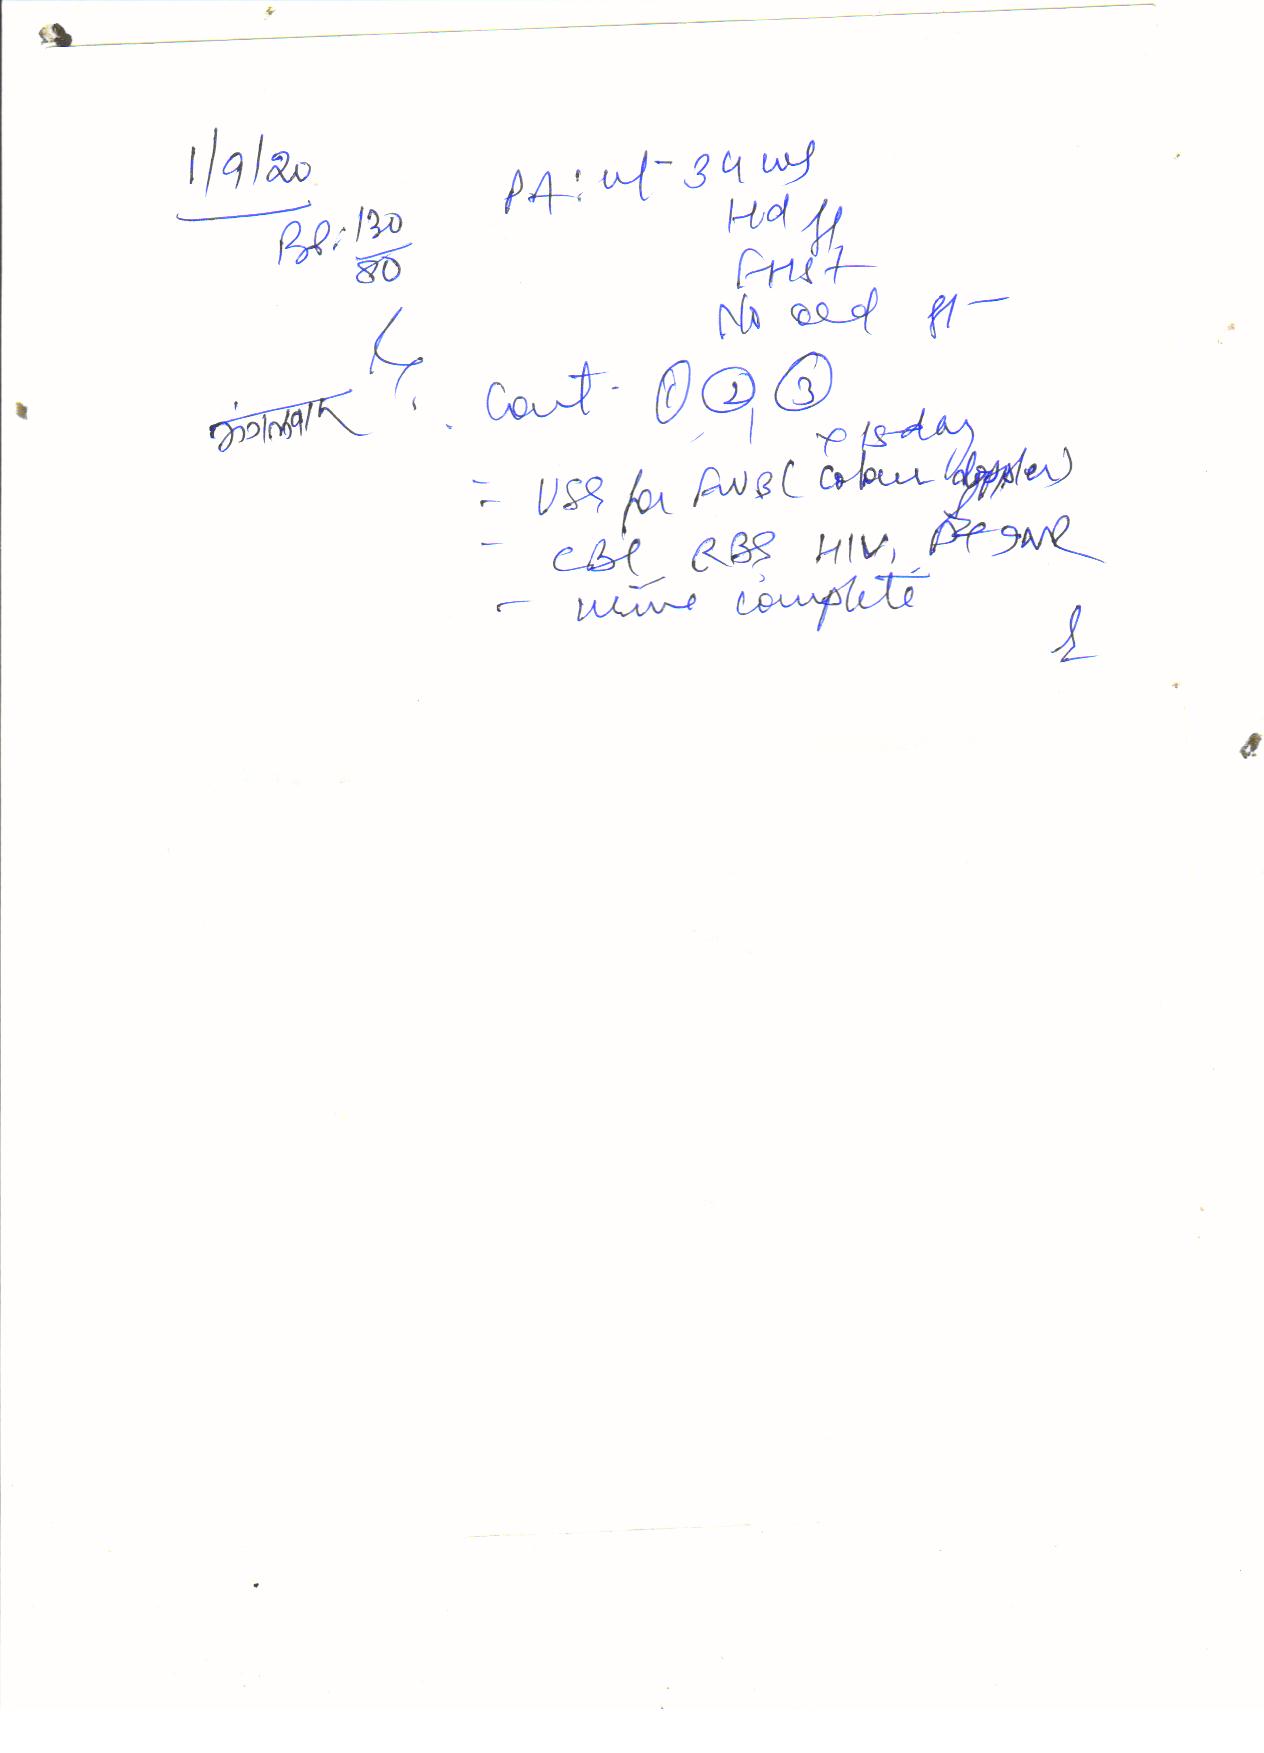 1/9/20
BP: 130/80
PA: ut - 34 wks
Hd ff
FHS +
No oed pt -
Cont - ① ② ③
x 15 day
- USS for FWB (colour doppler)
- CBC RBS HIV, PT INR
- urine complete